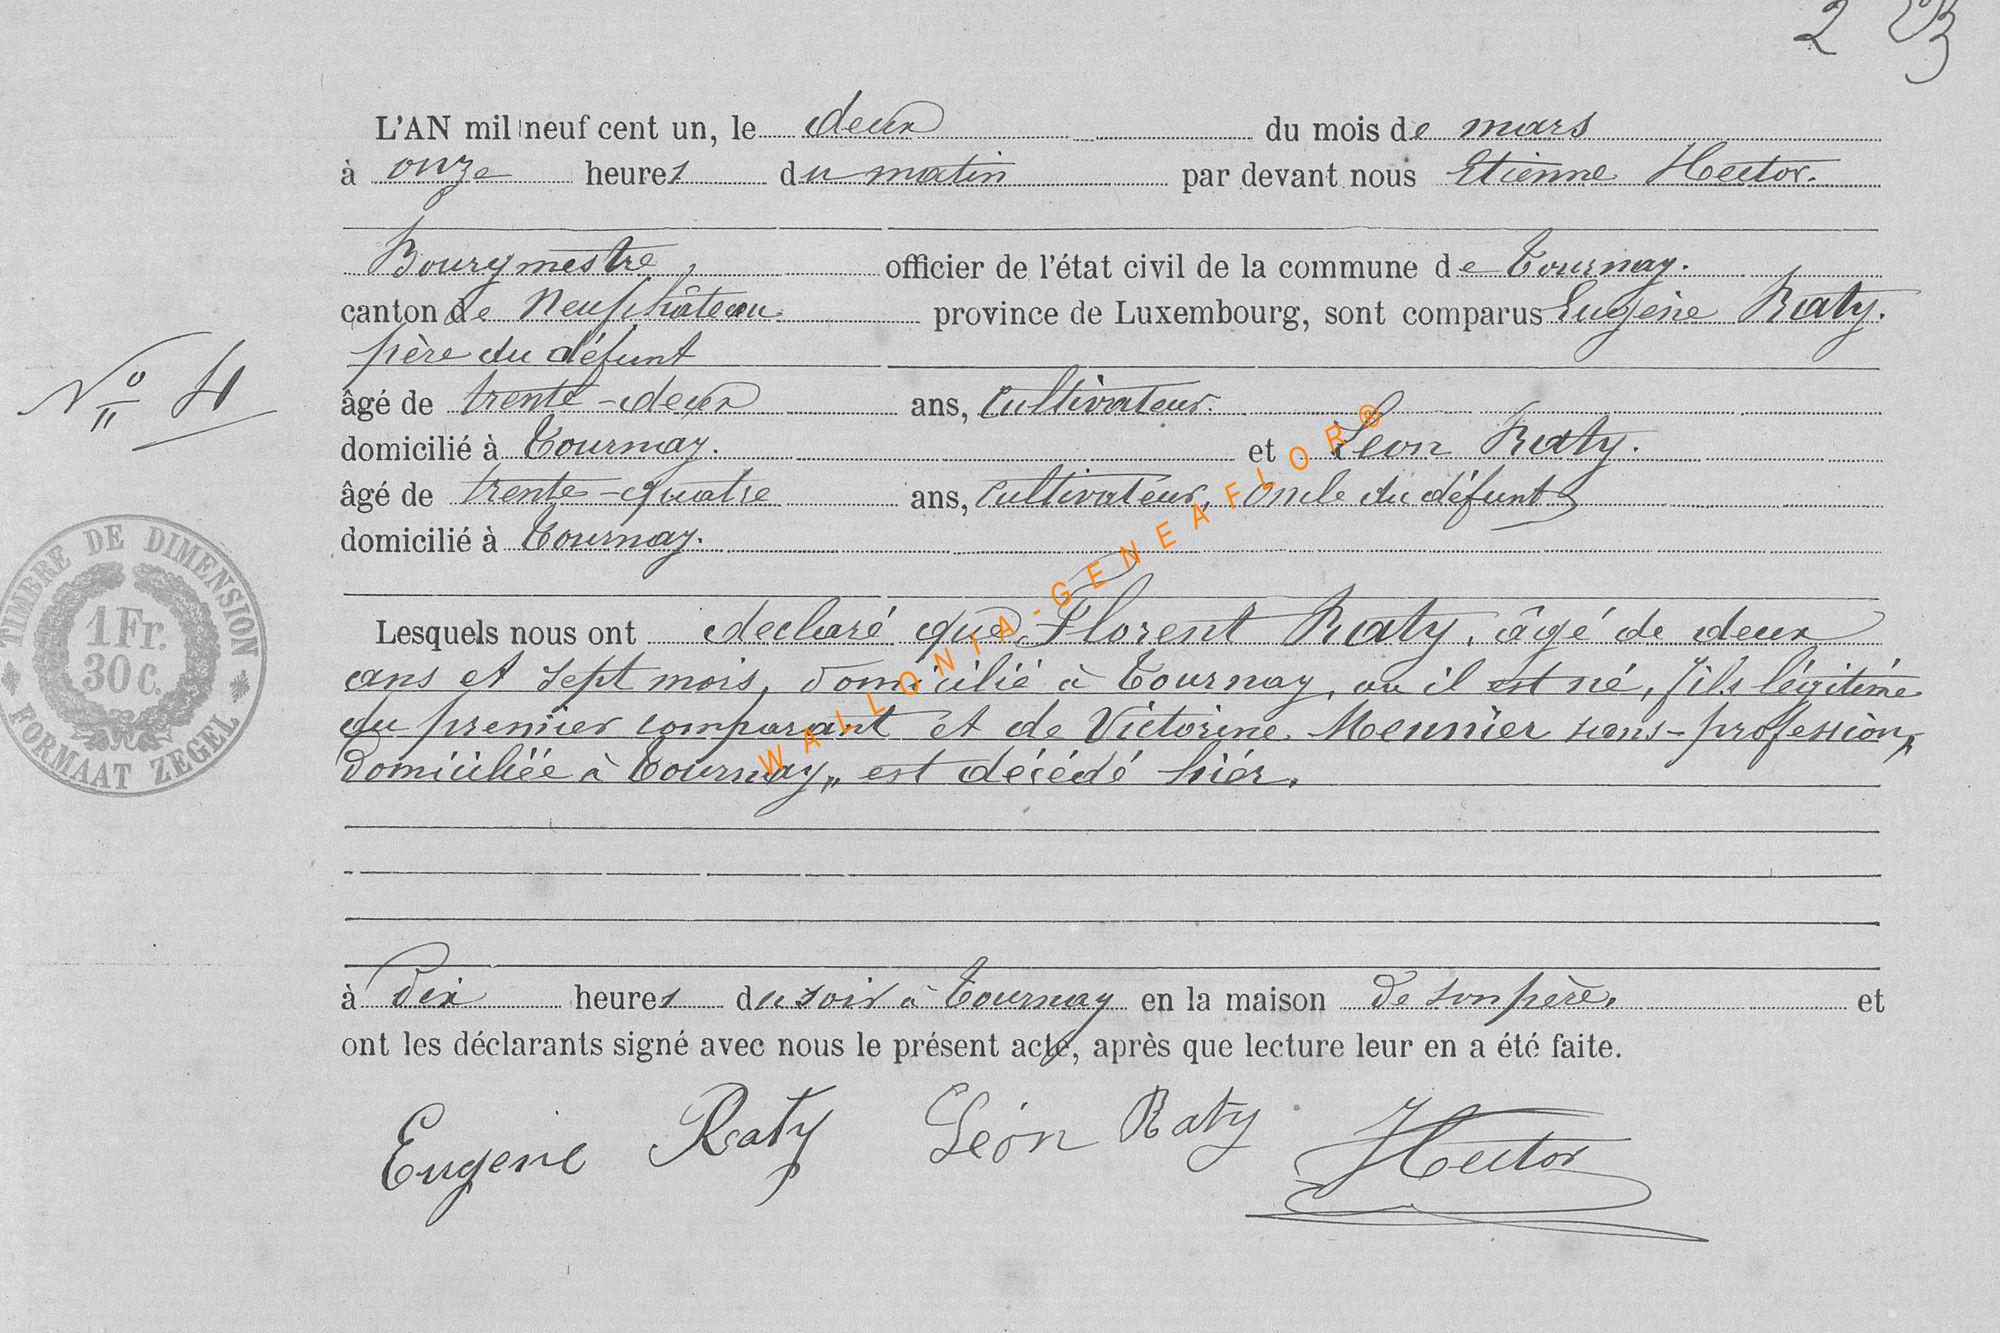 2
L'AN mil neuf cent un, le deux du mois de mars
à onze heures du matin par devant nous Etienne Hector.
Bourgmestre, officier de l'état civil de la commune de Tournay.
canton de Neufchâteau province de Luxembourg, sont comparus Eugène Raty.
père du défunt
N° 4
âgé de trente-deux ans, cultivateur.
domicilié à Tournay. et Léon Raty.
âgé de trente-quatre ans, cultivateur, oncle du défunt
domicilié à Tournay.
TIMBRE DE DIMENSION
1 Fr.
30 c.
FORMAAT ZEGEL
Lesquels nous ont déclaré que Florent Raty, âgé de deux
ans et sept mois, domicilié à Tournay, ou il est né, fils légitime
du premier comparant et de Victorine Meunier sans-profession,
domiciliée à Tournay, est décédé hier.
à dix heures du soir à Tournay en la maison de son père, et
ont les déclarants signé avec nous le présent acte, après que lecture leur en a été faite.
Eugène Raty Léon Raty Hector
WALLONIA-GENEAFLOR®